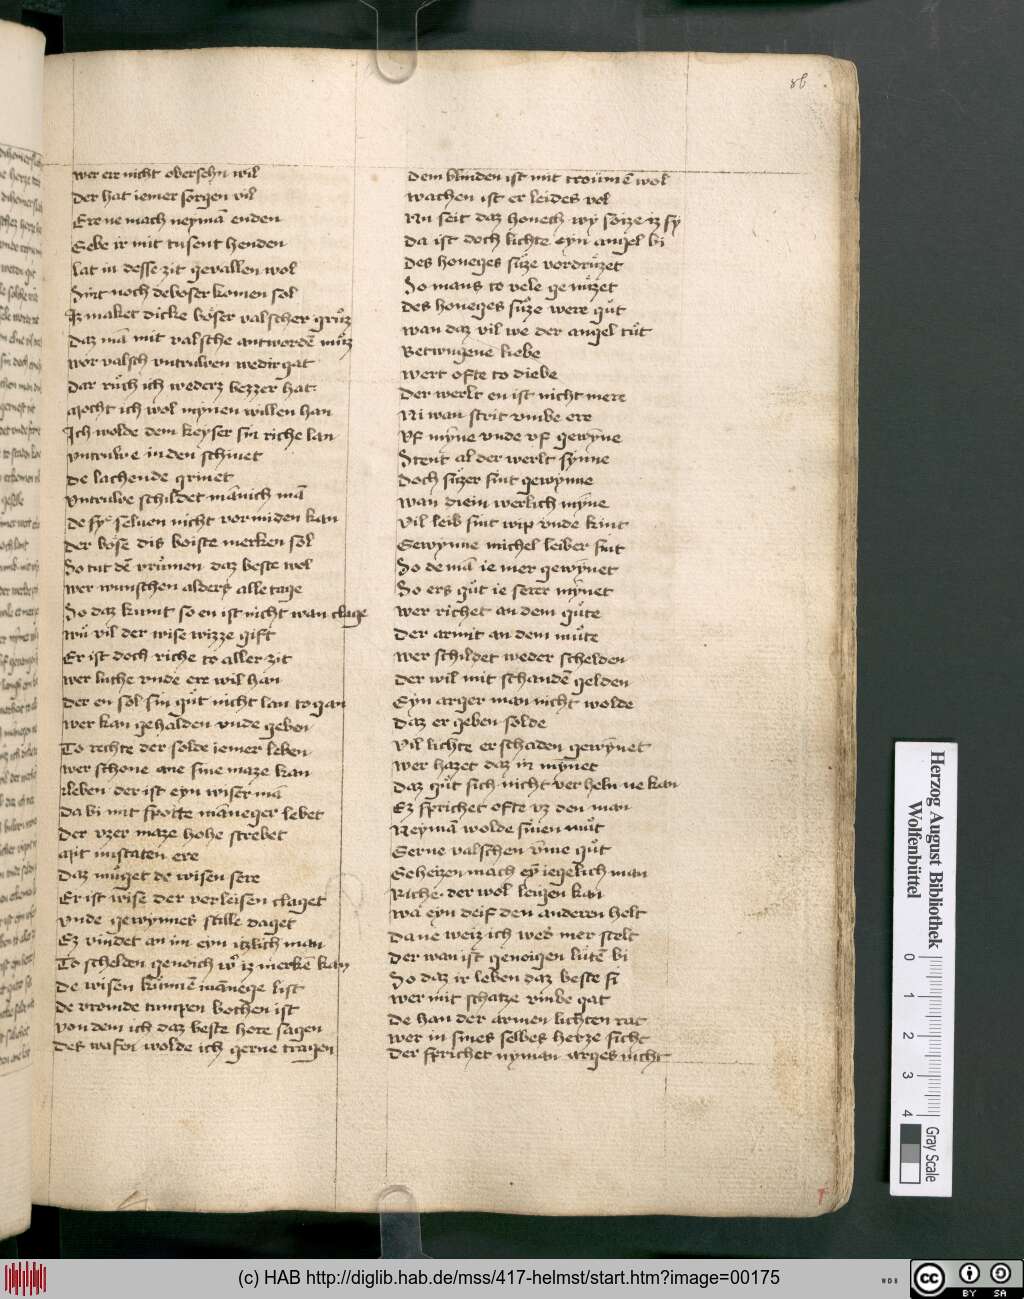 86
wer eir nicht obersehn wil
der hat iemer sorgen vil
Ere ne mach neymā enden
Gebe ir mit tusent henden
lat in desse zit gevallen wol
Sint noch deboser komen sol
Iz maket dicke böser valscher grůz
daz mā mit valsche antwordē můz
wor valsch vntruwen wedirgat
dar růch ich wederz bezzer hat
Mocht ich wol mynen willen han
Ich wolde dem keyser sin riche lan
vntruwe in den schinet
de lachende grinet
vntruwe schildet mānich mā
de sy selven nicht vormiden kan
der böse dis boiste merken sol
So tut dē vrůmen daz beste wol
wer wunschen alders alle tage
So daz kumt so en ist nicht wan clage
wů vil der wise wizze gift
Er ist doch riche to aller zit
wer liebe vnde ere wil han
der en sol sin gůt nicht lan to gan
wer kan gehalden vnde geben
To rechte der solde iemer leben
wer schone ane sine maze kan
leben der ist eyn wiser mā
da bi mit spotte māneger lebet
der vzer maze hohe strebet
Mit mistaten ere
daz můget de wisen sere
Er ist wise der verleisen claget
vnde gewynnes stille daget
Ez vindet an im eyn itzlich man
To schelden genoich wͦ iz merkē kan
de wisen kůnnē mānege list
de vromde tumpen bochen ist
von dem ich daz beste hore sagen
des wafen wolde ich gerne tragen
dem blinden ist mit troümē wol
wachen ist er leides vol
Nu seit daz honech wy söize iz sy
da ist doch lichte eyn angel bi
des honeges sůze vordrůzet
So mans to vele ge nůzet
des honeges sůze were gůt
wan daz vil we der angel tůt
Betwngene liebe
wert ofte to diebe
der werlt en ist nicht mere
Ni wan strit vmbe ere
vf mȳne vnde vf gewȳne
Stent al der werlt sȳnne
doch sůzer sint gewynne
wan diein werlich mȳne
vil leib sint wip vnde kint
Gewynne michel leiber sint
So de mā ie mer gewȳnet
So ers gůt ie serer mȳnet
wer richet an dem gůte
der armit an dem můte
wer schildet weder schelden
der wil mit schandē gelden
Eyn arger man nicht wolde
daz er geben solde
vil lichte er schaden gewȳnet
wer hazet daz in mynet
daz gůt sich nicht ver heln ne kan
Ez sprichet ofte vz den man
Neymā wolde sinen můt
Gerne valschen vme gůt
Geheizen mach eȳ iegelich man
Riche der wol leigen kan
wa eyn deif den anderen helt
da ne weiz ich wed͛ mer stelt
der wan ist geneigen lůtē bi
So daz ir leben daz beste si
wer mit schatze vmbe gat
de han der armen lichten rat
wer in sines selbes herze sicht
der sprichet nyman arges nicht
Herzog August Bibliothek
Wolfenbüttel
0 1 2 3 4
Gray Scale
(c) HAB http://diglib.hab.de/mss/417-helmst/start.htm?image=00175
WDB
cc BY SA